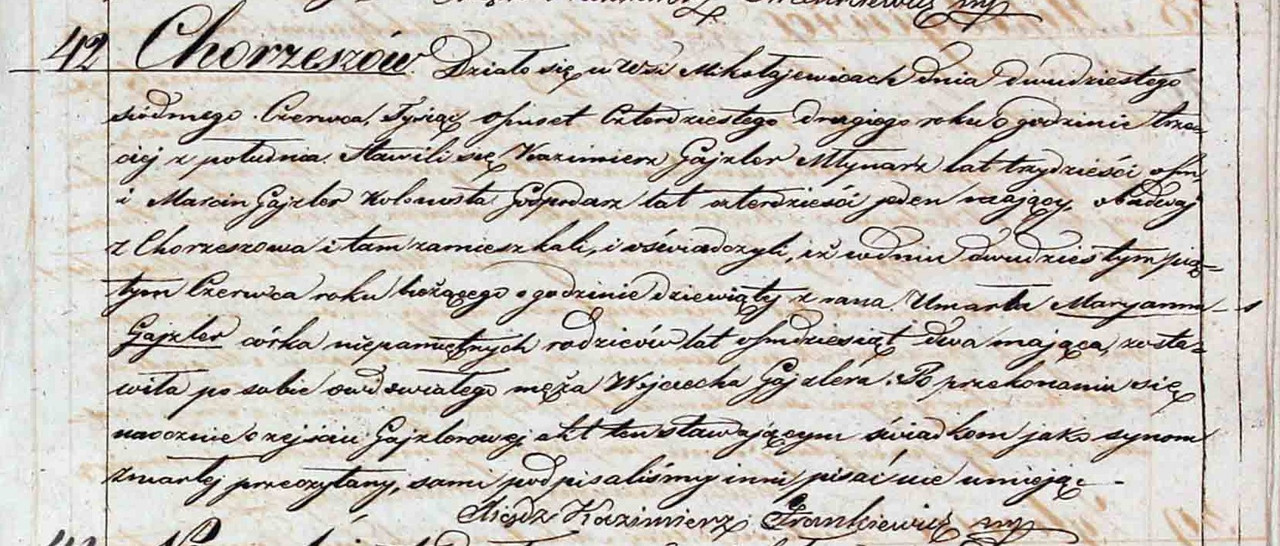 42 Chorzeszów. Działo się w Wsi Mikołajewicach dnia dwudziestego
siódmego Czerwca, Tysiąc ośmset Czterdziestego drugiego roku o godzinie trze-
ciej z południa. Stawili się Kazimierz Gajzler Młynarz lat trzydzieści ośm,
i Marcin Gajzler Kolonista Gospodarz lat czterdzieści jeden mający, obadwaj
z Chorzeszowa i tam zamieszkali, i oświadczyli, iż w dniu dwudziestym pią-
tym Czerwca roku bieżącego o godzinie dziewiąty z rana Umarła Maryanna - 1
Gajzler córka niepamiętnych rodziców lat ośmdziesiąt dwa mająca, zosta-
wiła po sobie owdowiałego męża Wojciecha Gajzlera. Po przekonaniu się
naocznie o zejściu Gajzlerowej akt ten stawającym świadkom jako synom
zmarłej przeczytany, sami podpisaliśmy inni pisać nie umieją -
Xiądz Kazimierz Frankiewicz mp